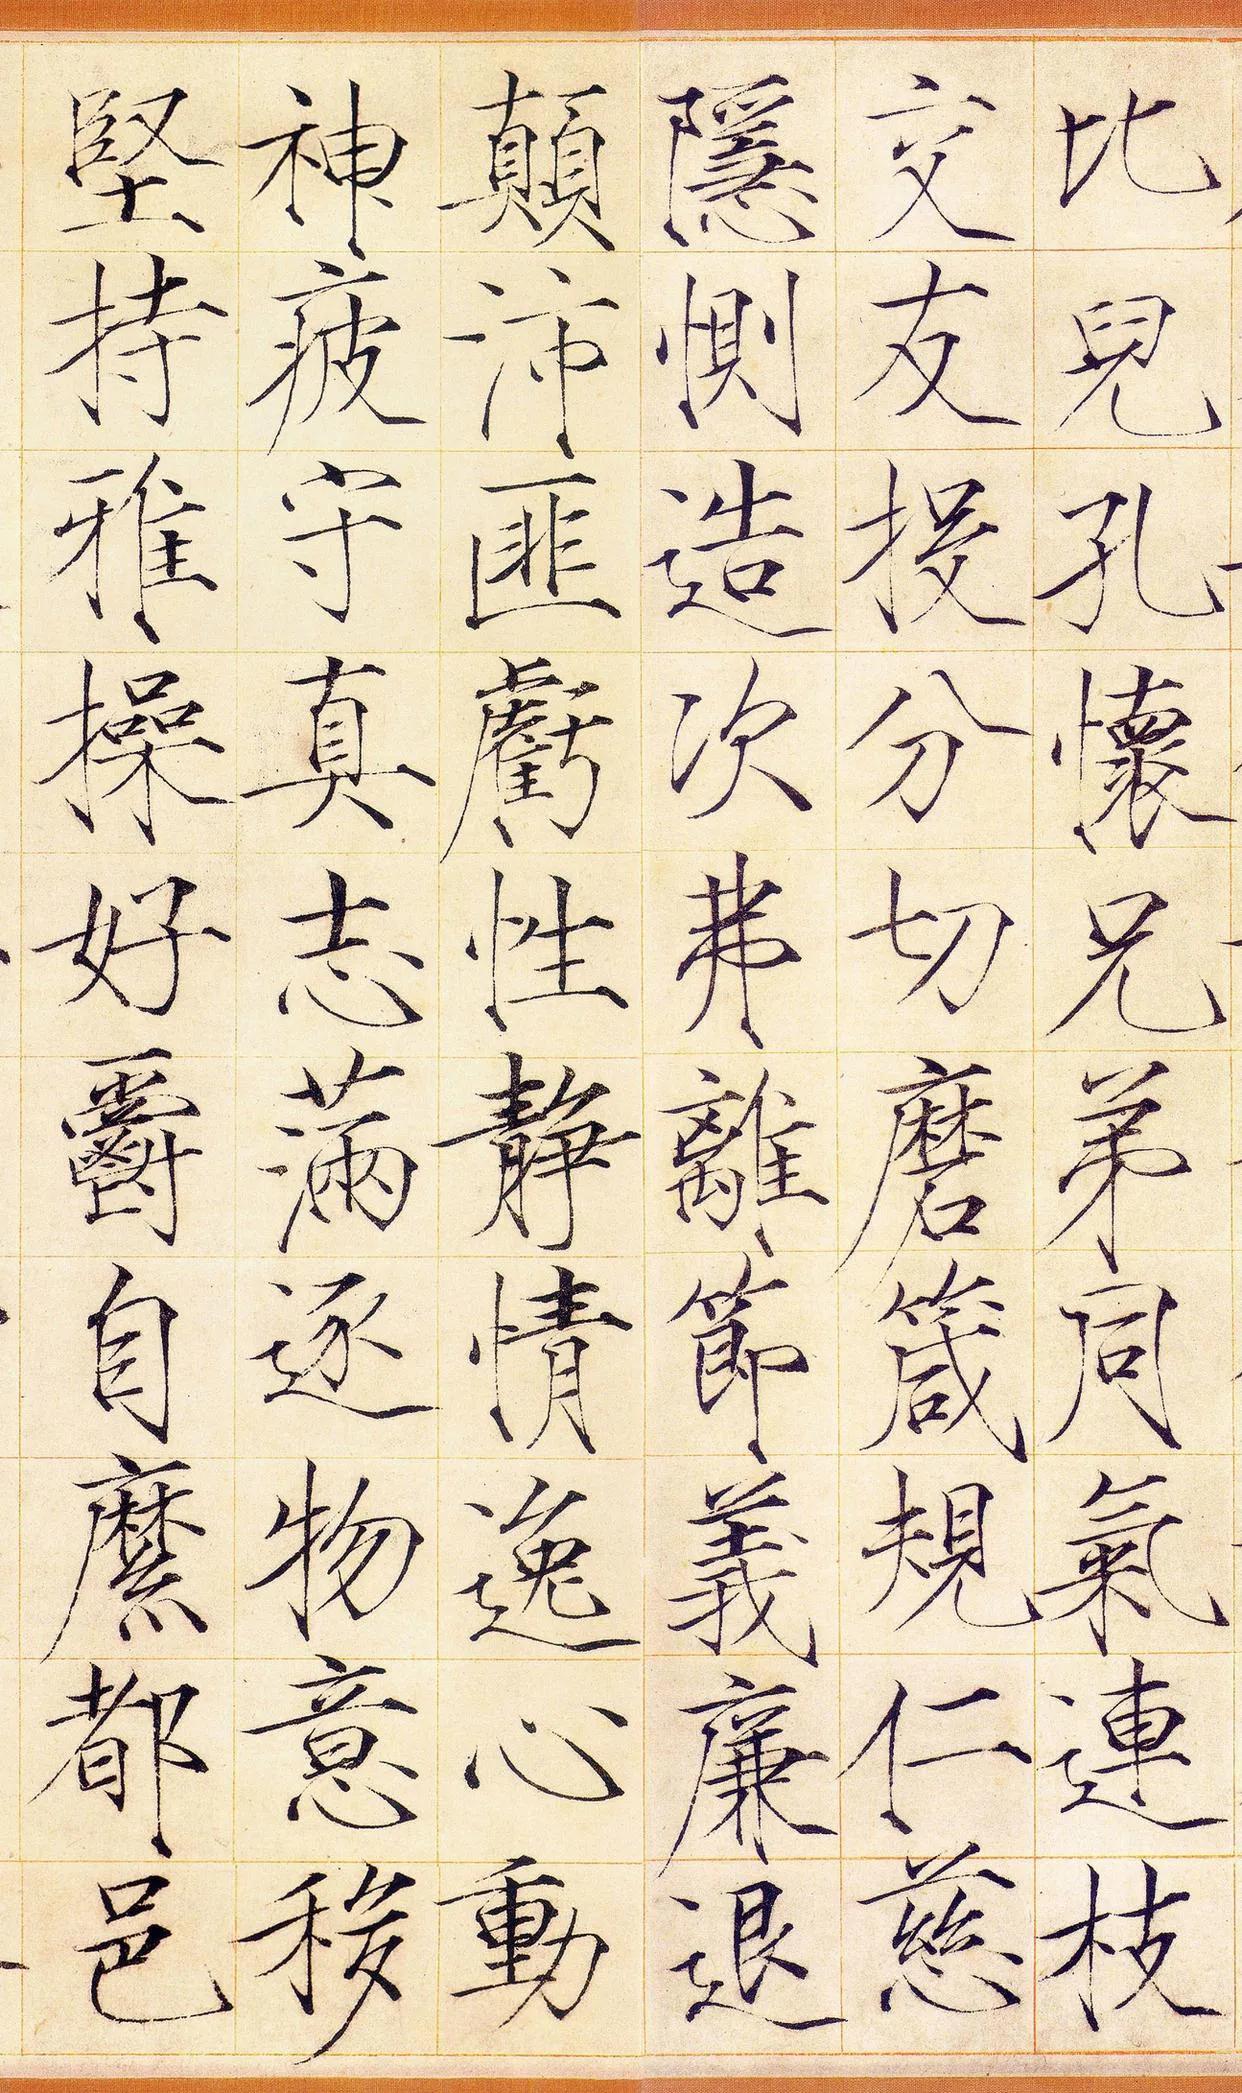 比兒孔懷兄弟同氣連枝
交友投分切磨箴規仁慈
隱惻造次弗離節義廉退
顛沛匪虧性靜情逸心動
神疲守真志滿逐物意移
堅持雅操好爵自縻都邑